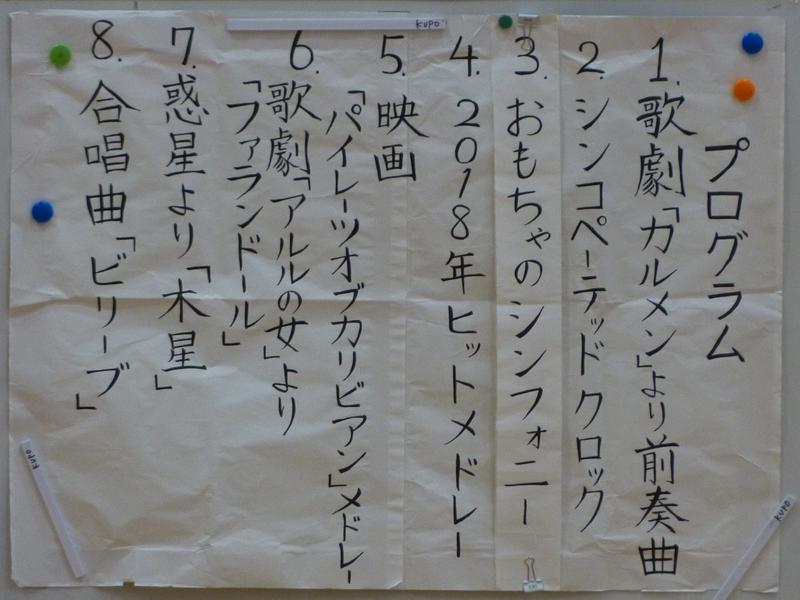 プログラム
1.歌劇「カルメン」より前奏曲
2.シンコペーテッドクロック
3.おもちゃのシンフォニー
4.2018年ヒットメドレー
5.映画
「パイレーツオブカリビアン」メドレー
6.歌劇「アルルの女」より
「ファランドール」
7.惑星より「木星」
8.合唱曲「ビリーブ」
KUPO
KUPO
KUPO